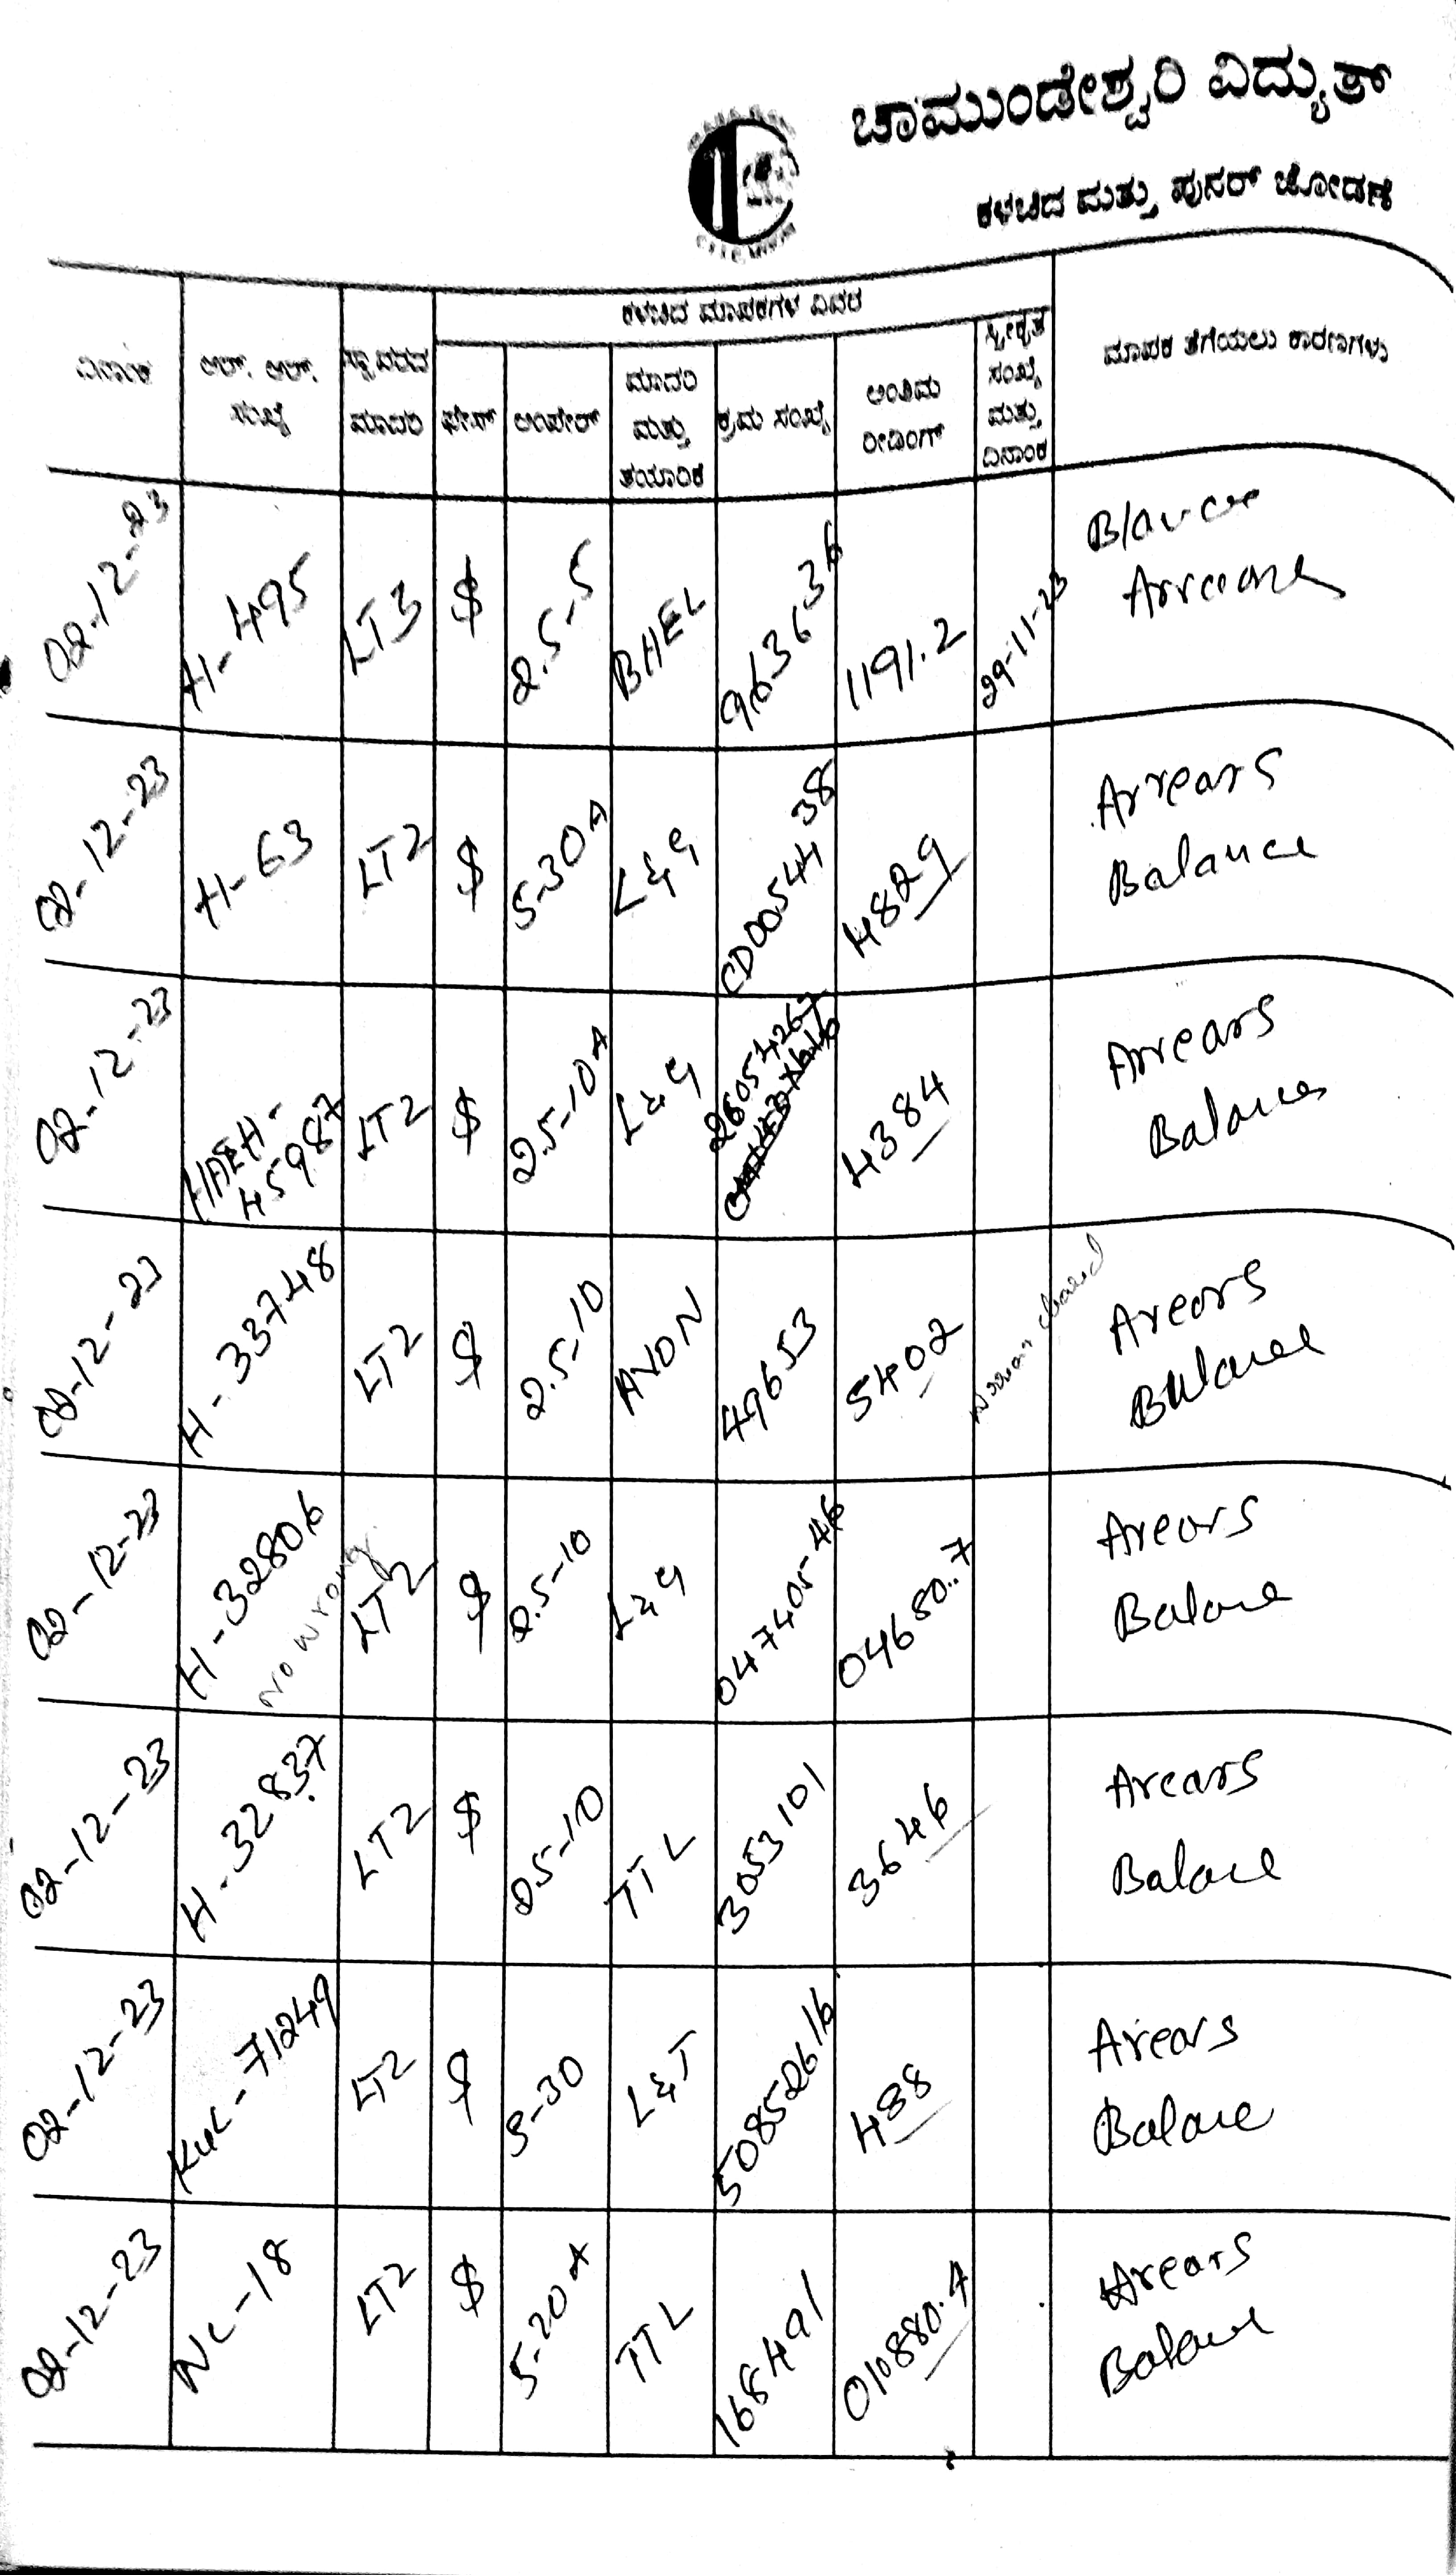 ಚಾಮುಂಡೇಶ್ವರಿ ವಿದ್ಯುತ್
ಕಳಚಿದ ಮತ್ತು ಪುನರ್ ಜೋಡಣೆ
ದಿನಾಂಕ
ಆರ್. ಆರ್.
ಸಂಖ್ಯೆ
ಸ್ಥಾವರದ
ಮಾದರಿ
ಕಳಚಿದ ಮಾಪಕಗಳ ವಿವರ
ಫೇಸ್
ಆಂಪೇರ್
ಮಾದರಿ
ಮತ್ತು
ತಯಾರಿಕ
ಕ್ರಮ ಸಂಖ್ಯೆ
ಅಂತಿಮ
ರೀಡಿಂಗ್
ಸ್ವೀಕೃತ
ಸಂಖ್ಯೆ
ಮತ್ತು
ದಿನಾಂಕ
ಮಾಪಕ ತೆಗೆಯಲು ಕಾರಣಗಳು
02-12-23 H-495 LT3 $ 2.5-5 BHEL 963636 1191.2 29-11-23
02-12-23 H-63 LT2 $ 5-30A L&G CD0054438 4829 Arrears
Balance
02-12-23 45987 LT2 $ 2.5-10A L&G 26054267 4384 Arrears
Balance
02-12-23 H-33748 LT2 $ 2.5-10 AVON 49653 5402 Arears
Balance
02-12-23 H-32806 LT2 $ 2.5-10 L&G 047405-46 04680.7 Arears
no wrong
Balance
02-12-23 H-32837 LT2 $ 25-10 TTL 3053101 3646 Arears
Balance
02-12-23 KUC-71249 LT2 $ 5-30 L&T 50852616 488 Arears
Balance
02-12-23 NC-18 LT2 $ 5-20A TTL 168491 010880.4 Arears
Balance